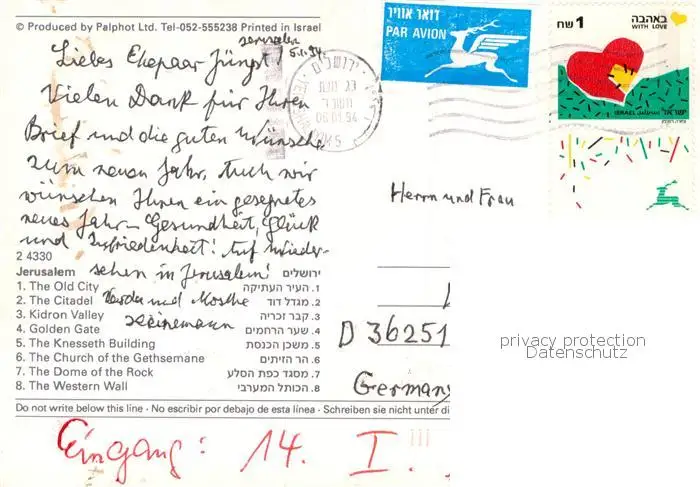 © Produced by Palphot Ltd. Tel-052-555238 Printed in Israel
Jerusalem
5.1.94.
Liebes Ehepaar Jüngst!
Vielen Dank für Ihren
Brief und die guten Wünsche
zum neuen Jahr. Auch wir
wünschen Ihnen ein gesegnetes
neues Jahr - Gesundheit, Glück
und Zufriedenheit! Auf Wieder-
sehen in Jerusalem!
und Moshe
Heinemann
דואר אוויר
PAR AVION
ירושלים
06.01.94
1 שח
באהבה
WITH LOVE
ISRAEL ישראל
Herrn und Frau
D 36251
Germany
2 4330
Jerusalem ירושלים
1. The Old City 1. העיר העתיקה
2. The Citadel 2. מגדל דוד
3. Kidron Valley 3. קבר זכריה
4. Golden Gate 4. שער הרחמים
5. The Knesseth Building 5. משכן הכנסת
6. The Church of the Gethsemane 6. הר הזיתים
7. The Dome of the Rock 7. מסגד כפת הסלע
8. The Western Wall 8. הכותל המערבי
Do not write below this line · No escribir por debajo de esta línea · Schreiben sie nicht unter di
Eingang: 14. I.
privacy protection
Datenschutz